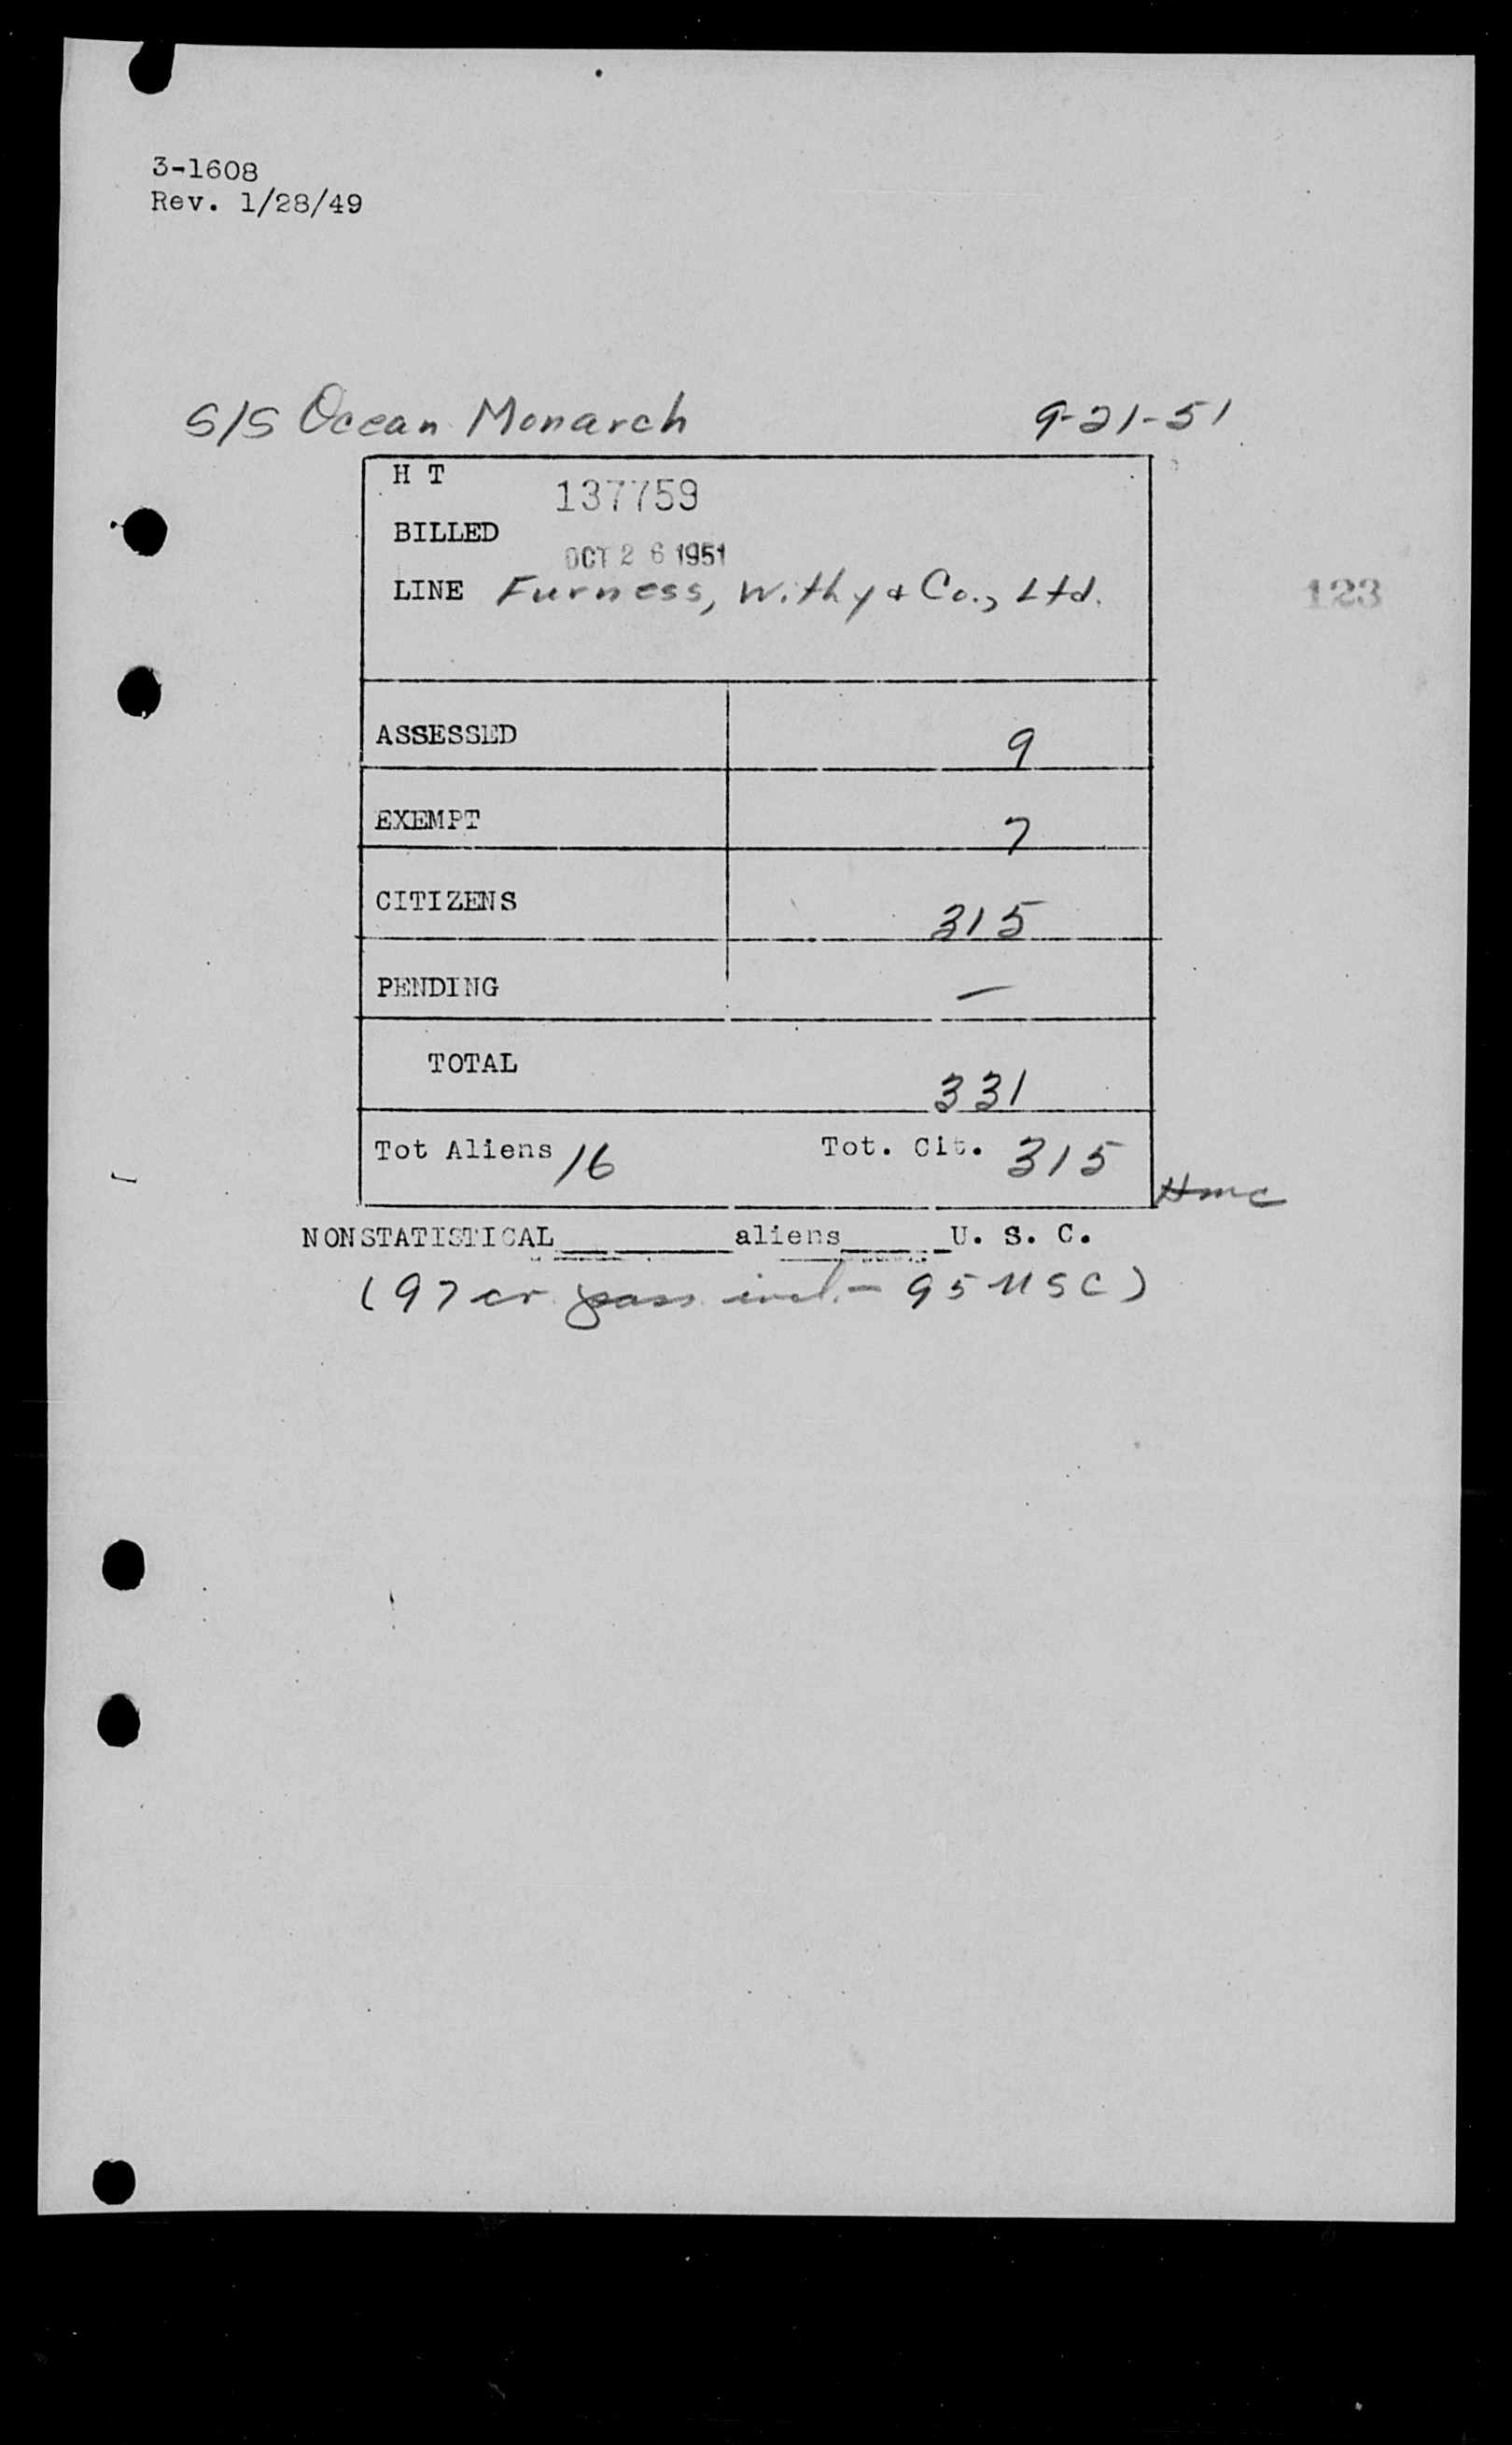 3-1608
Rev. 1/28/49
S/S Ocean Monarch 9-21-51
H T 137759
BILLED
OCT 26 1951
LINE Furness, Withy & Co., Ltd.
123
ASSESSED 9
EXEMPT 7
CITIZENS 315
PENDING —
TOTAL 331
Tot Aliens 16 Tot. Cit. 315
Hmc
NONSTATISTICAL____ aliens____U. S. C.
(97 cr pass incl. - 95 USC)